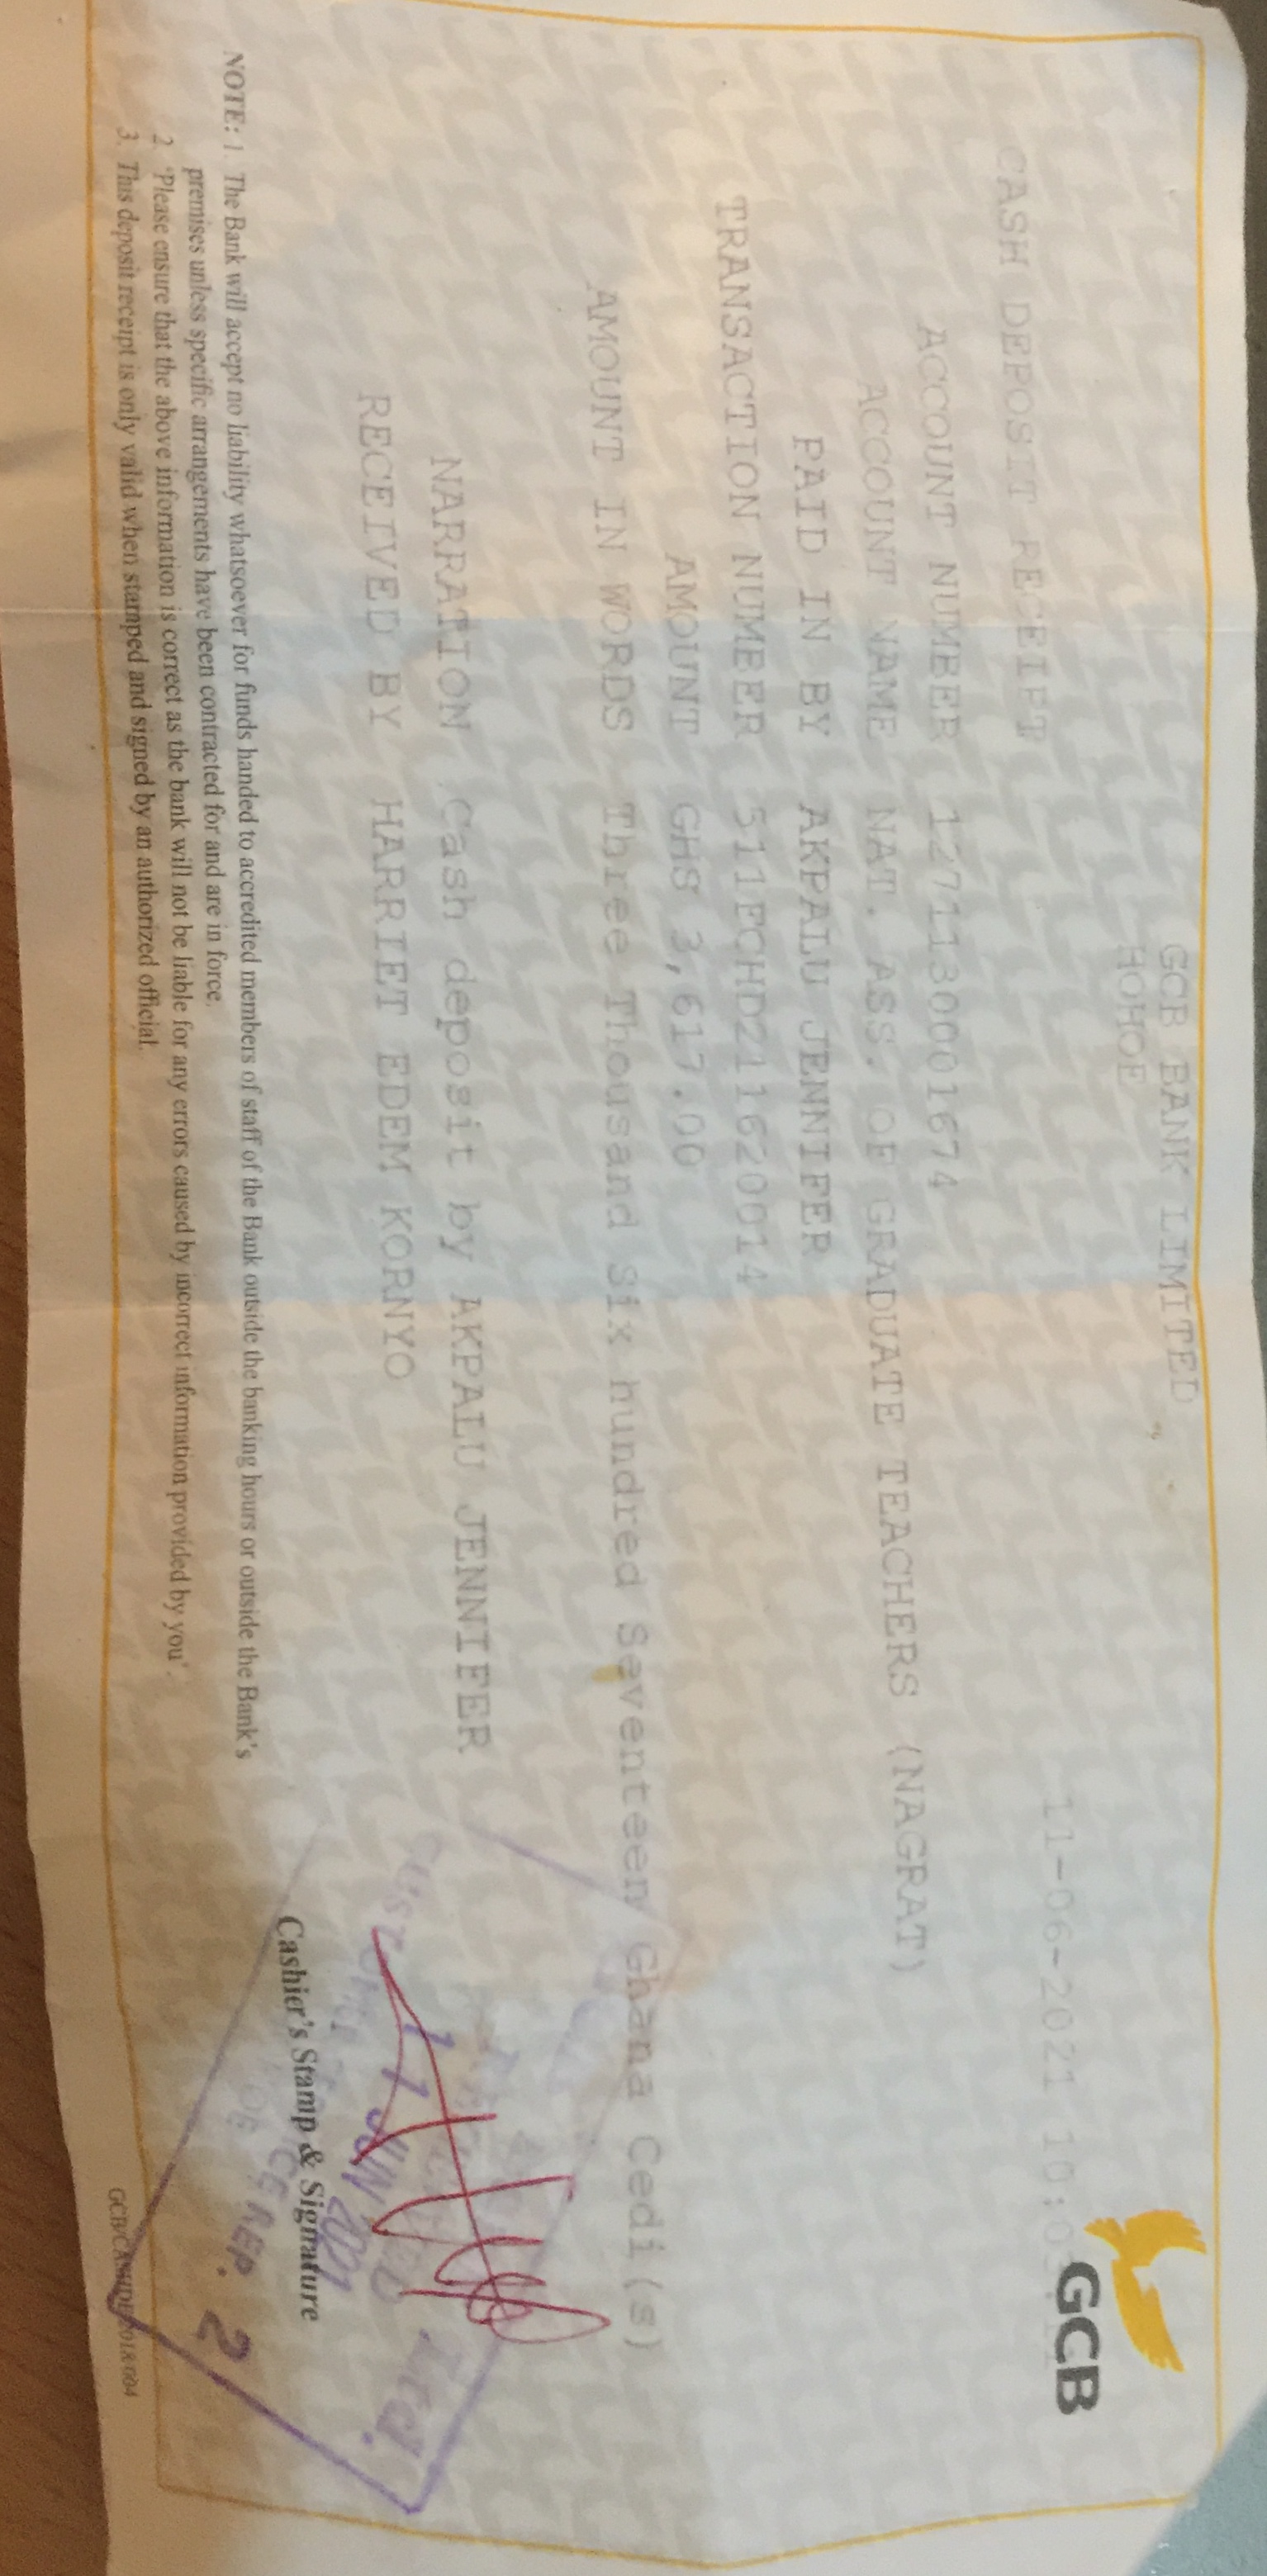 GCB BANK LIMITED
HOHOE
GCB
11-06-2021 10:0
CASH DEPOSIT RECEIPT
ACCOUNT NUMBER 1271130001674
ACCOUNT NAME NAT. ASS. OF GRADUATE TEACHERS (NAGRAT)
PAID IN BY AKPALU JENNIFER
TRANSACTION NUMBER 511FCHD211620014
AMOUNT GHS 3,617.00
AMOUNT IN WORDS Three Thousand Six hundred Seventeen Ghana Cedi(s)
NARRATION Cash deposit by AKPALU JENNIFER
RECEIVED BY HARRIET EDEM KORNYO
11 JUN 2021
REP. 2
Ltd.
Cashier's Stamp & Signature
NOTE: 1. The Bank will accept no liability whatsoever for funds handed to accredited members of staff of the Bank outside the banking hours or outside the Bank's
premises unless specific arrangements have been contracted for and are in force.
2. 'Please ensure that the above information is correct as the bank will not be liable for any errors caused by incorrect information provided by you'.
3. This deposit receipt is only valid when stamped and signed by an authorized official.